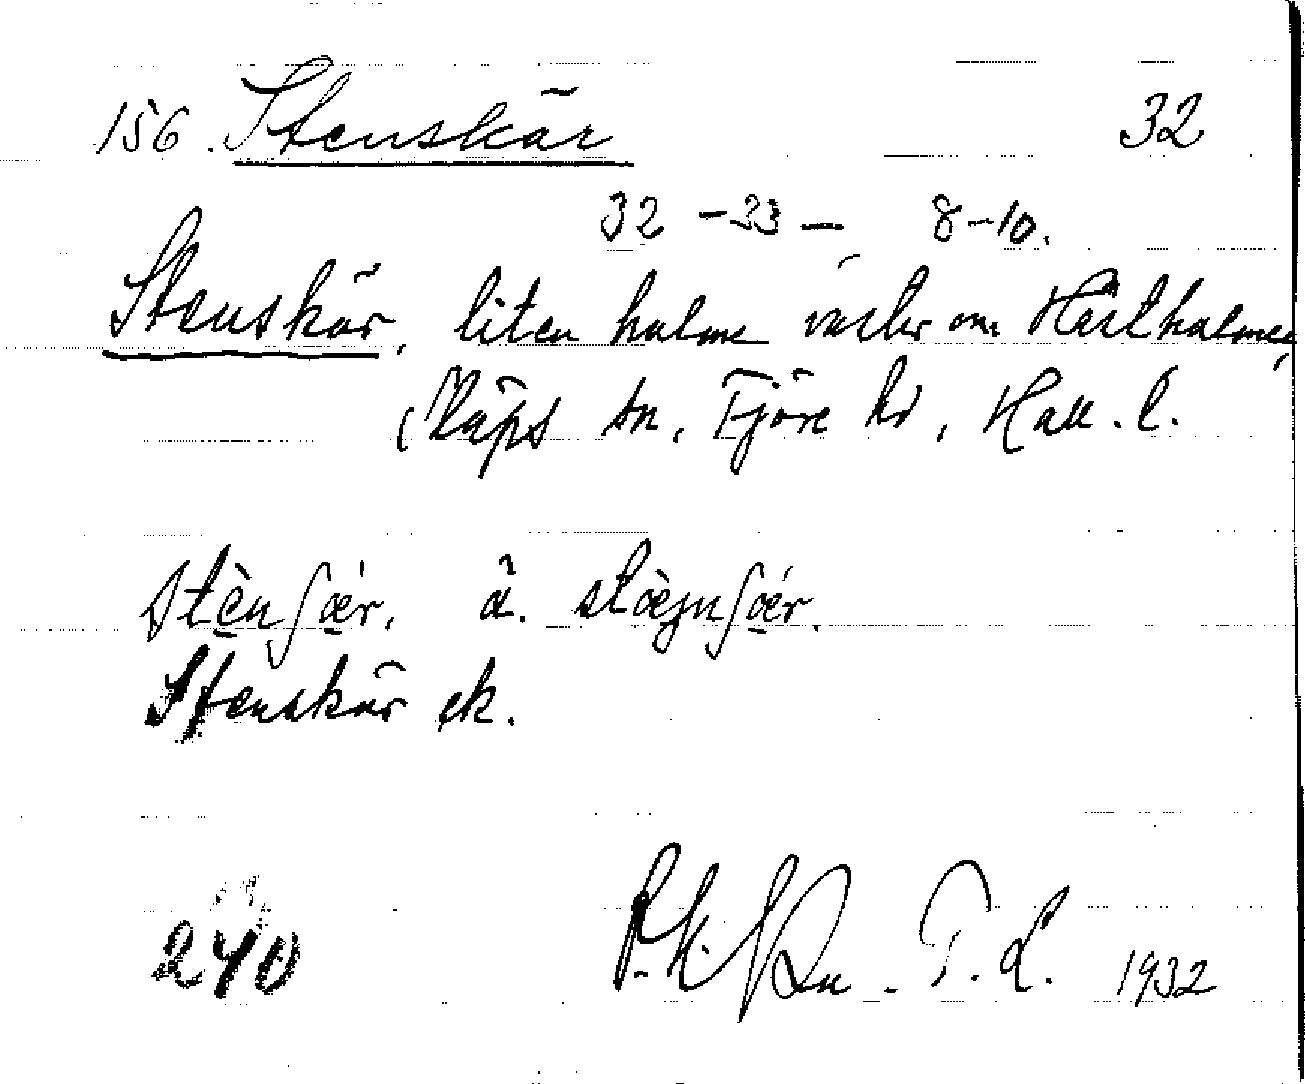 156. Stenskär 32
32 – 33 – 8–10.
Stenskär, liten holme väster om Hästholmen,
Släps sn, Fjäre hd, Hall. l.
stènʃǽr. ä.
Stenskär ek.
240 T. L. 1932